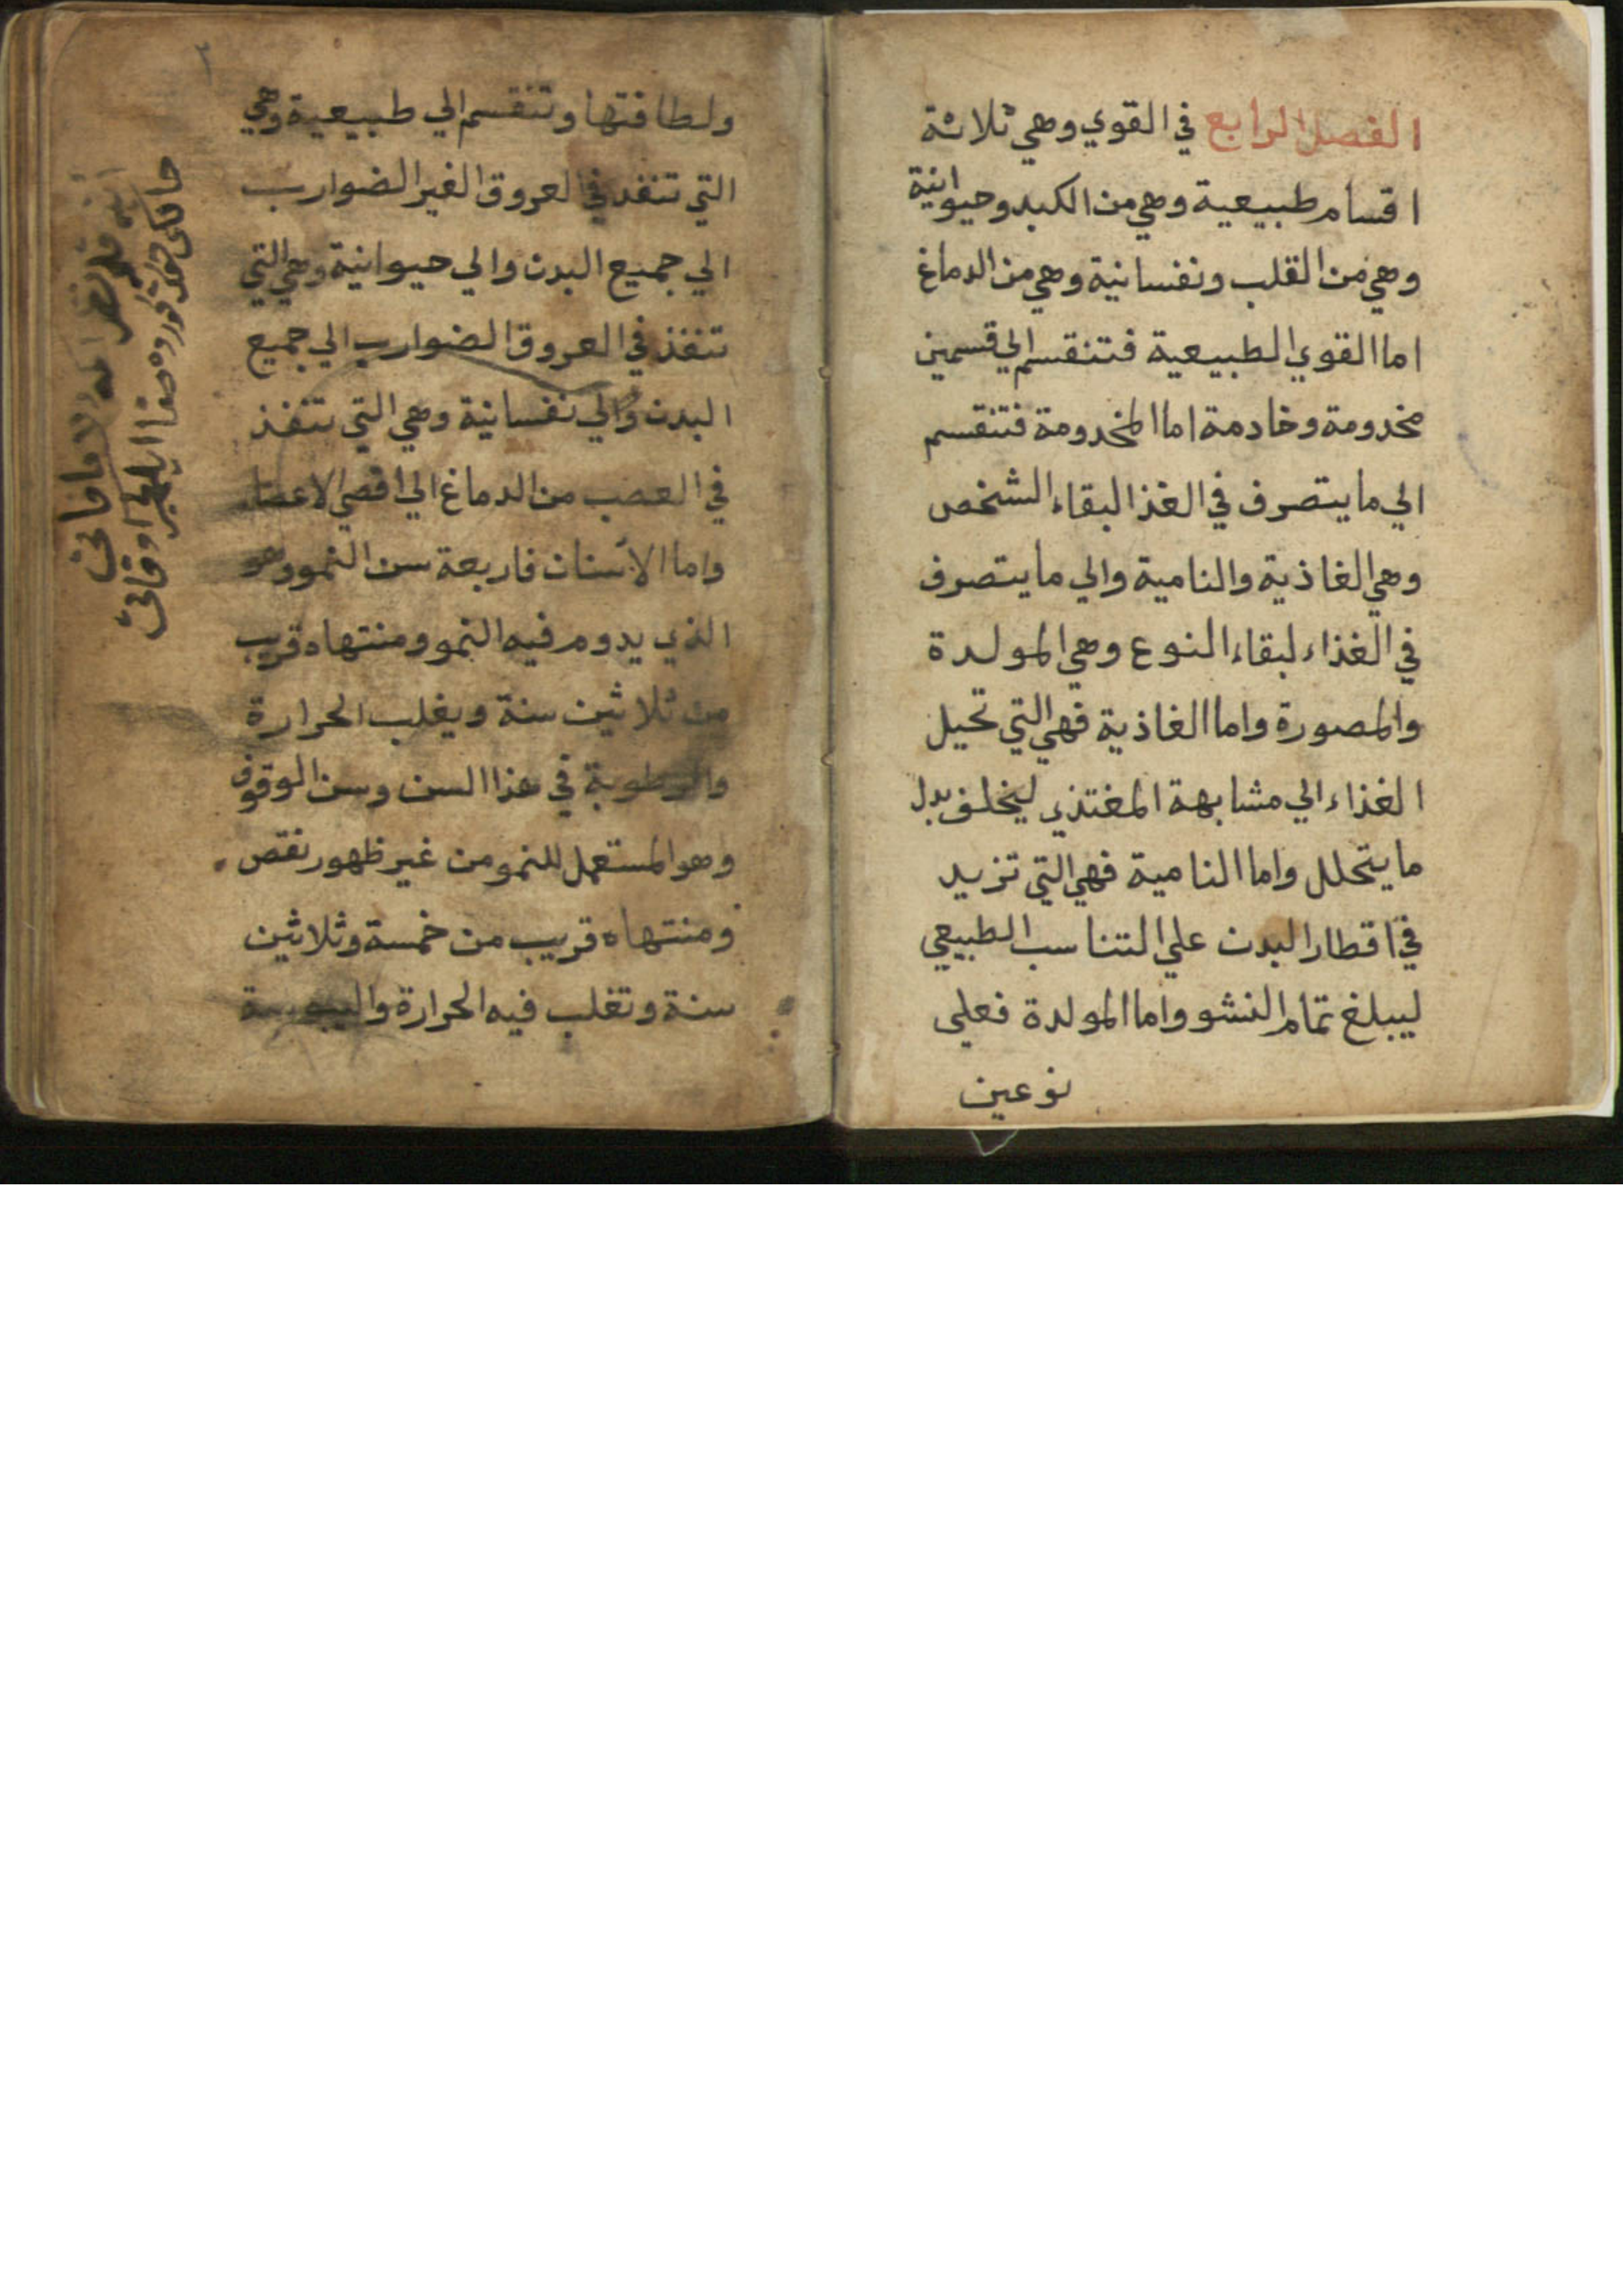 الفصل الرابع في القوي وهي ثلاثة
اقسام طبيعية وهي من الكبد وحيوانية
وهي من القلب ونفسانية وهي من الدماغ
اما القوي الطبيعية فتنقسم الي قسمين
مخدومة وخادمة اما المخدومة فتنقسم
الي ما يتصرف في الغذا لبقاء الشخص
وهي الغاذية والنامية والي ما يتصرف
في الغذاء لبقاء النوع وهي المولدة
والمصورة واما الغاذية فهي التي تحيل
الغذاء الي مشابهة المغتذي ليخلف بدل
ما يتحلل واما النامية فهي التي تزيد
في اقطار البدن علي التناسب الطبيعي
ليبلغ تمام النشو واما المولدة فعلي
نوعين
٢
ولطافتها وتنقسم الي طبيعية وهي
التي تنفد في العروق الغير الضوارب
الي جميع البدن والي حيوانية وهي التي
تنفذ في العروق الضوارب الي جميع
البدن والي نفسانية وهي التي تنفذ
في العصب من الدماغ الي اقصي الاعضاء
واما الاسنان فاربعة سن النمو وهو
الذي يدوم فيه النمو ومنتهاه قريب
من ثلاثين سنة ويغلب الحرارة
والرطوبة في هذا السن وسن الوقوف
وهو المستعمل للنمو من غير ظهور نقص
ومنتهاه قريب من خمسة وثلاثين
سنة وتغلب فيه الحرارة واليبوسة